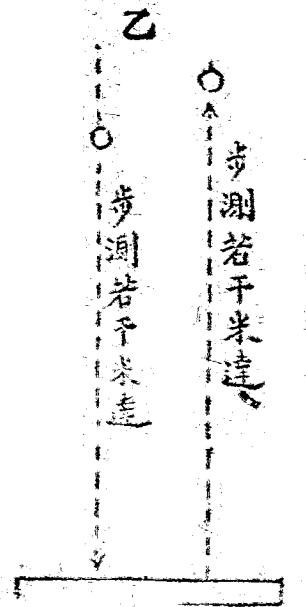 乙
步測若干米達
步測若干米達